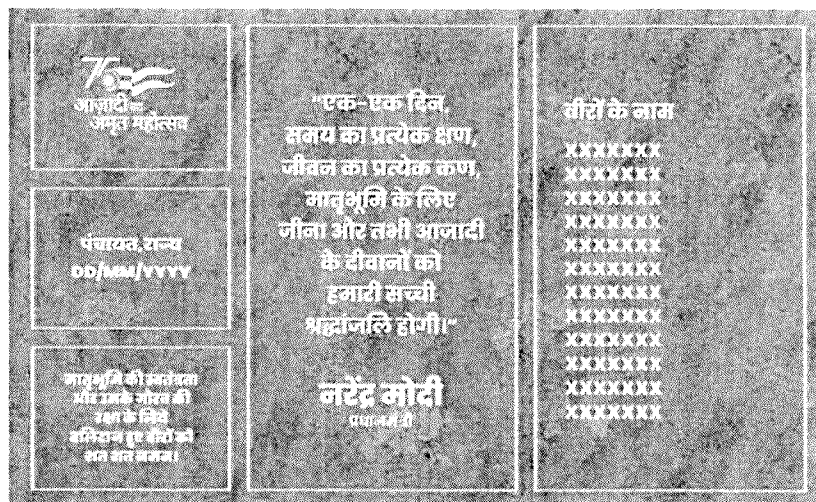 आज़ादी का
अमृत महोत्सव
पंचायत, राज्य
DD/MM/YYYY
मातृभूमि की स्वतंत्रता
और उसके गौरव की
रक्षा के लिये
बलिदान हुए वीरों को
शत शत नमन।
"एक-एक दिन,
समय का प्रत्येक क्षण,
जीवन का प्रत्येक कण,
मातृभूमि के लिए
जीना और तभी आजादी
के दीवानों को
हमारी सच्ची
श्रद्धांजलि होगी।"
नरेंद्र मोदी
प्रधानमंत्री
वीरों के नाम
XXXXXXX
XXXXXXX
XXXXXXX
XXXXXXX
XXXXXXX
XXXXXXX
XXXXXXX
XXXXXXX
XXXXXXX
XXXXXXX
XXXXXXX
XXXXXXX